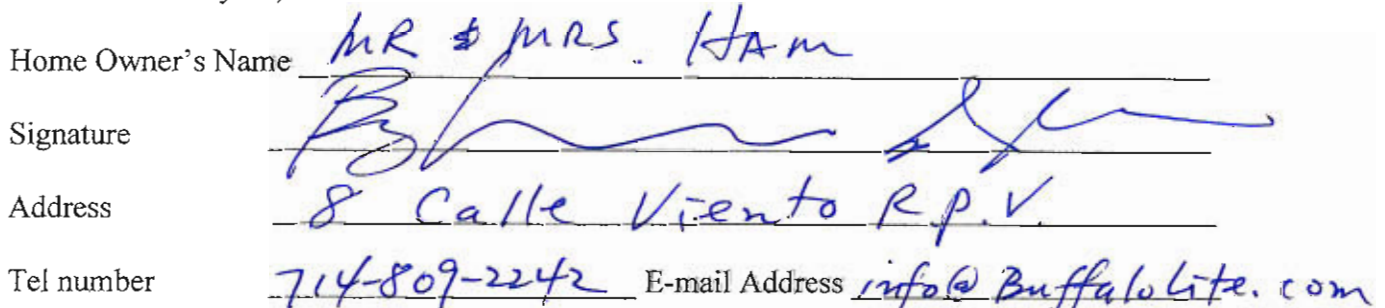 Home Owner's Name MR & MRS. HAM
Signature
Address 8 Calle Viento R.P.V.
Tel number 714-809-2242 E-mail Address info@BuffaloLite.com